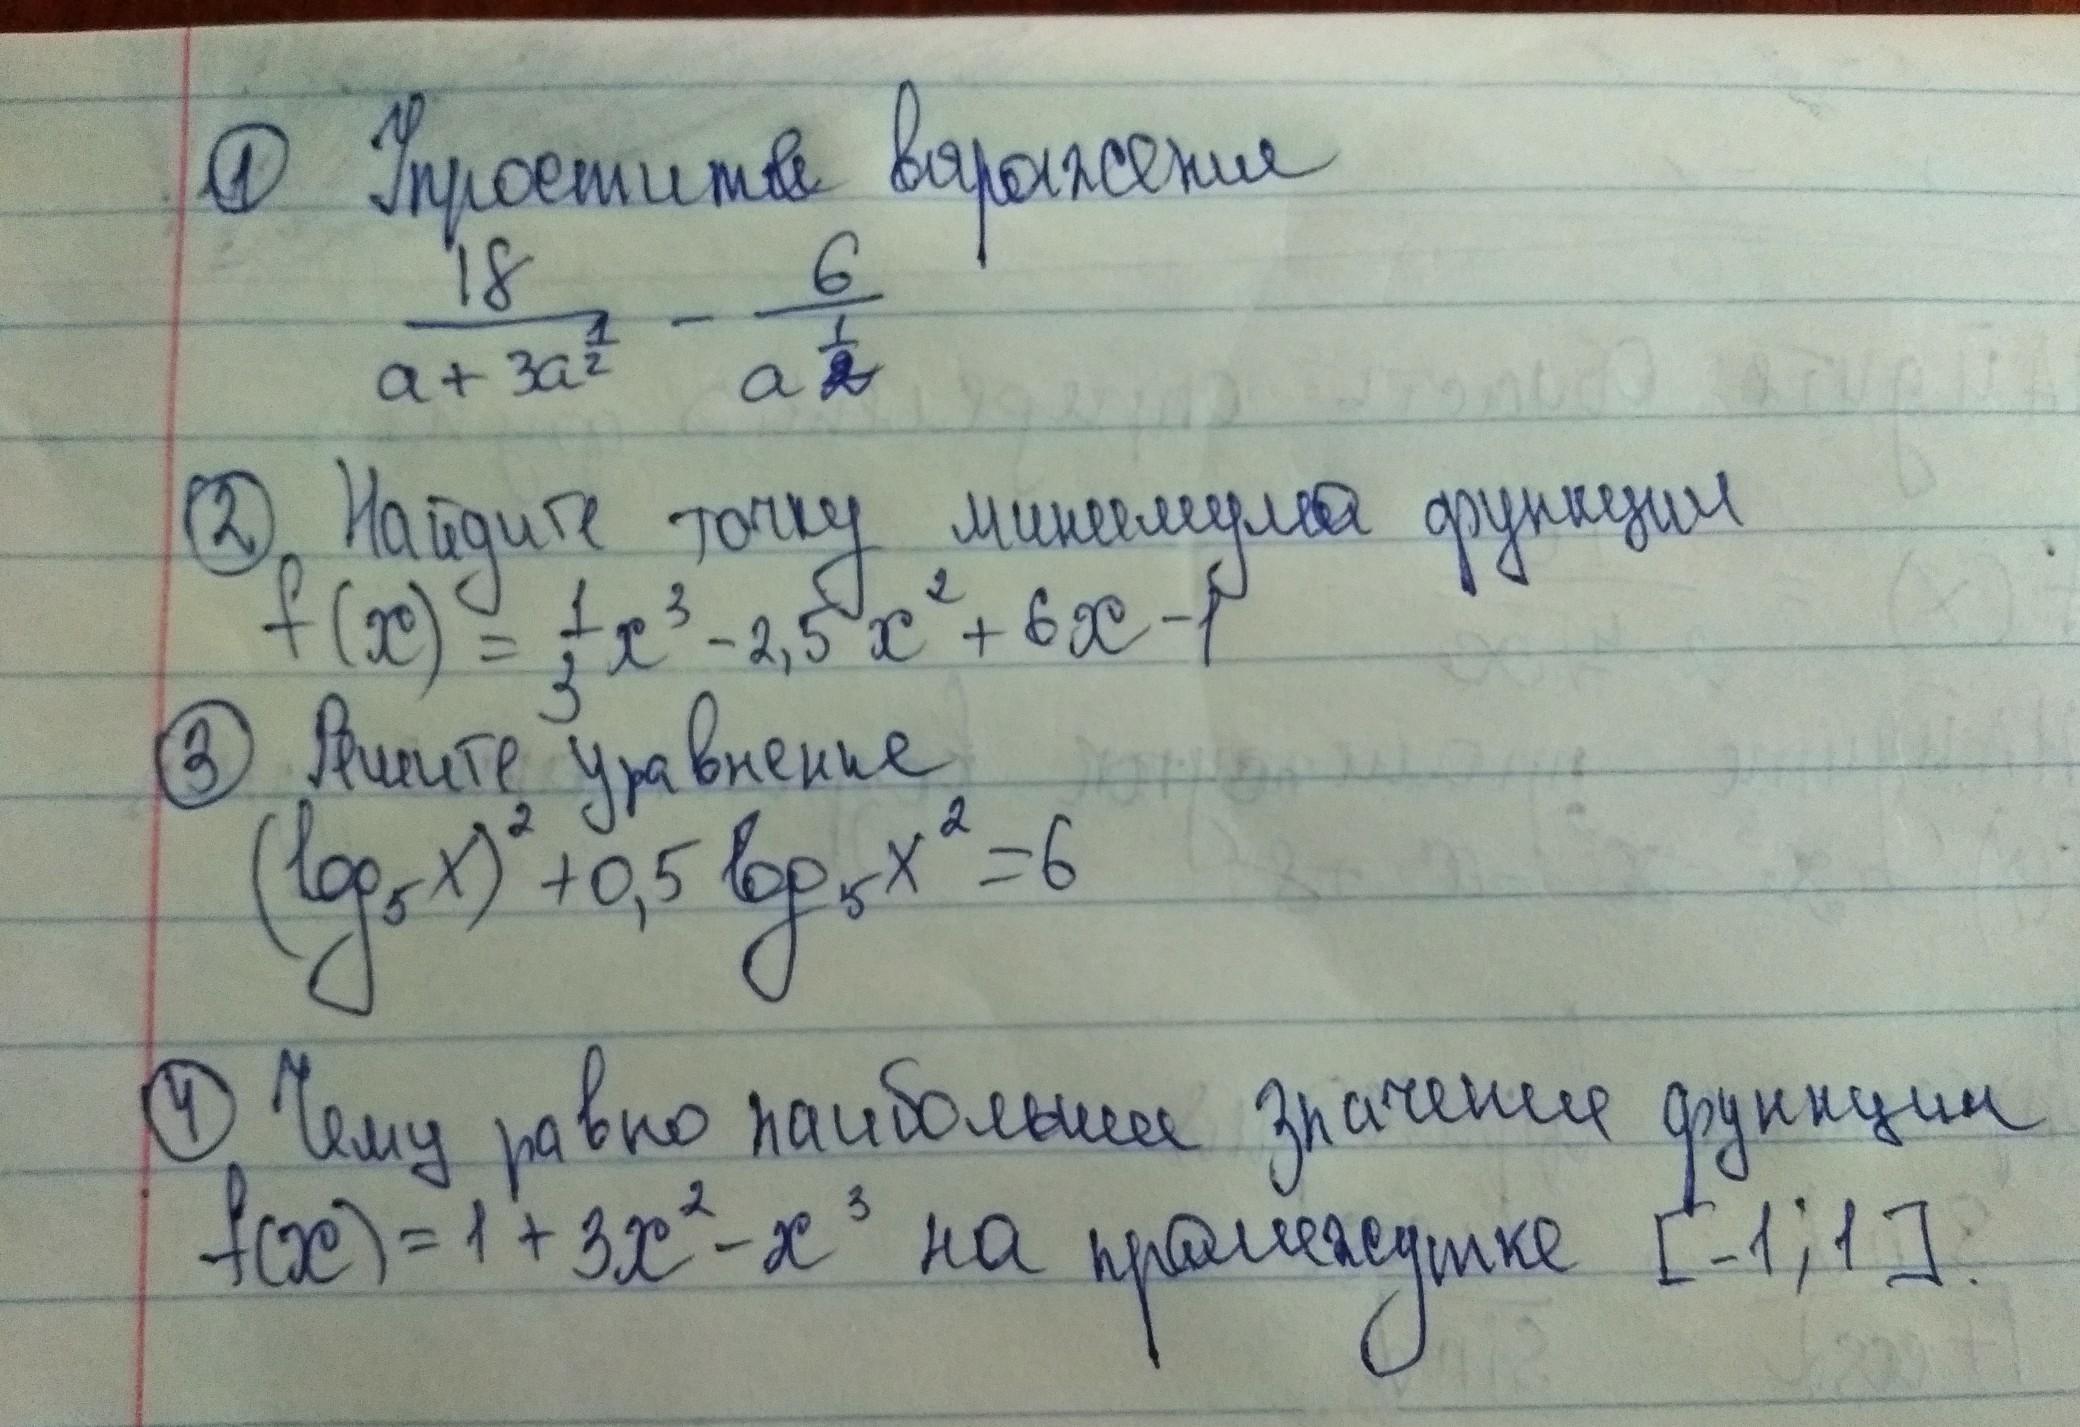 ① Упростите выражение
18/(a + 3a^(1/2)) - 6/a^(1/2)
② Найдите точку минимума функции
f(x) = 1/3 x³ - 2,5x² + 6x - 1
③ Решите уравнение
(log₅x)² + 0,5 log₅x² = 6
④ Чему равно наибольшее значение функции
f(x) = 1 + 3x² - x³ на промежутке [-1; 1].